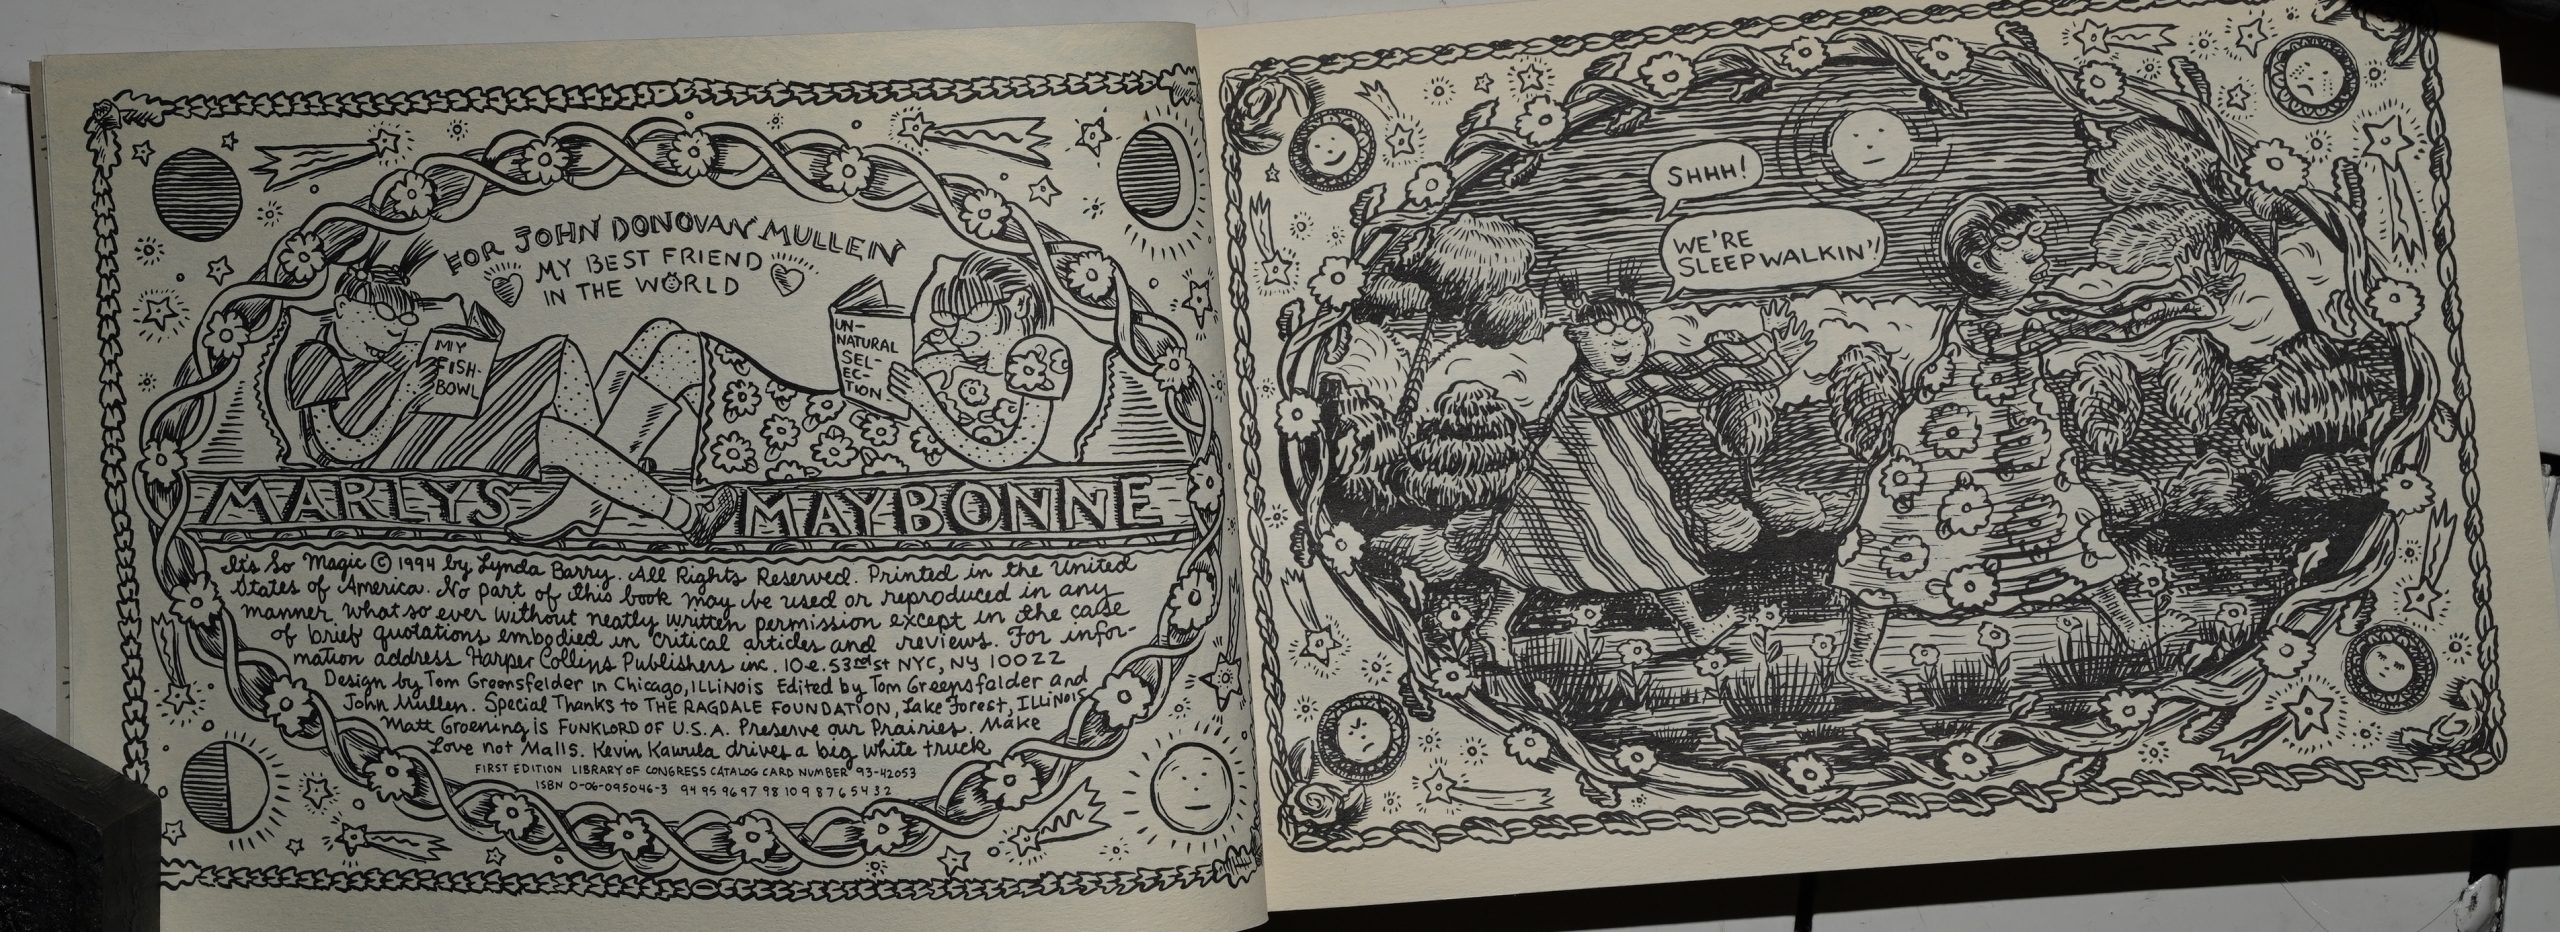 FOR JOHN DONOVAN MULLEN
MY BEST FRIEND
IN THE WORLD
MY
FISH-
BOWL
UN-
NATURAL
SEL-
EC-
TION
MARLYS MAYBONNE
It's So Magic © 1994 by Lynda Barry. All Rights Reserved. Printed in the United
States of America. No part of this book may be used or reproduced in any
manner what so ever without neatly written permission except in the case
of brief quotations embodied in critical articles and reviews. For infor-
mation address Harper Collins Publishers inc. 10 e. 53rd st NYC, NY 10022
Design by Tom Greensfelder in Chicago, ILLiNois Edited by Tom Greensfelder and
John Mullen. Special Thanks to THE RAGDALE FOUNDATION, Lake Forest, ILLiNois
Matt Groening is FUNKLORD OF U.S.A. Preserve our Prairies. Make
Love not Malls. Kevin Kawula drives a big white truck
FIRST EDITION LIBRARY OF CONGRESS CATALOG CARD NUMBER 93-42053
ISBN 0-06-095046-3 94 95 96 97 98 10 9 8 7 6 5 4 3 2
SHHH!
WE'RE
SLEEPWALKIN'!